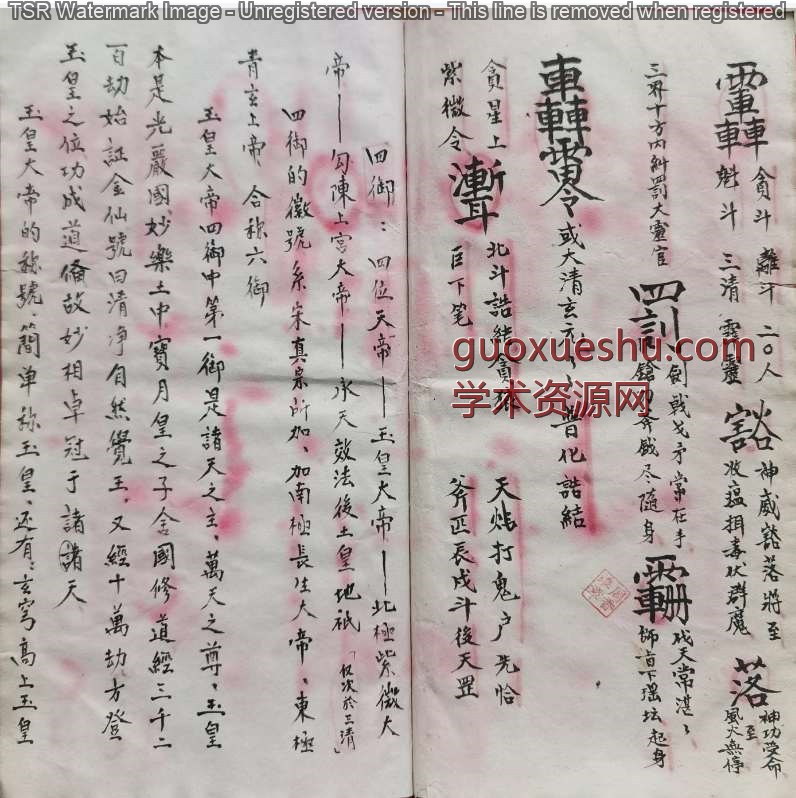 TSR Watermark Image - Unregistered version - This line is removed when registered
貪斗 離斗 二〇人
魁斗 三清
豁
神威豁落將至
收瘟捐毒伏群魔
落
神功受命至
風火無停
三界十方內糾四罰大靈官
四罰
劍戟戈矛常在手
尽隨身
代天常湛々
卸旨下瑤坛起身
或大清玄元 普化誥結
貪星上
紫微令
北斗誥結貪狼
巨下笔
天炁打鬼户先恰
斧匹辰戌斗後天罡
guoxueshu.com
学术资源网
四御：四位天帝—玉皇大帝—北極紫微大
帝—勾陳上宮大帝—承天效法後土皇地祇「仅次於三清」
四御的徽號系宋真宗所加、加南極長生大帝、東極
青玄上帝 合称六御
玉皇大帝四御中第一御是諸天之主、萬天之尊、玉皇
本是光嚴國妙樂土中寶月皇之子舍國修道經三千二
百劫始証金仙號曰清净自然覺王、又經十萬劫方登
玉皇之位功成道俻故妙相卓冠于諸諸天
玉皇大帝的称號、簡单称玉皇、还有：玄穹高上玉皇